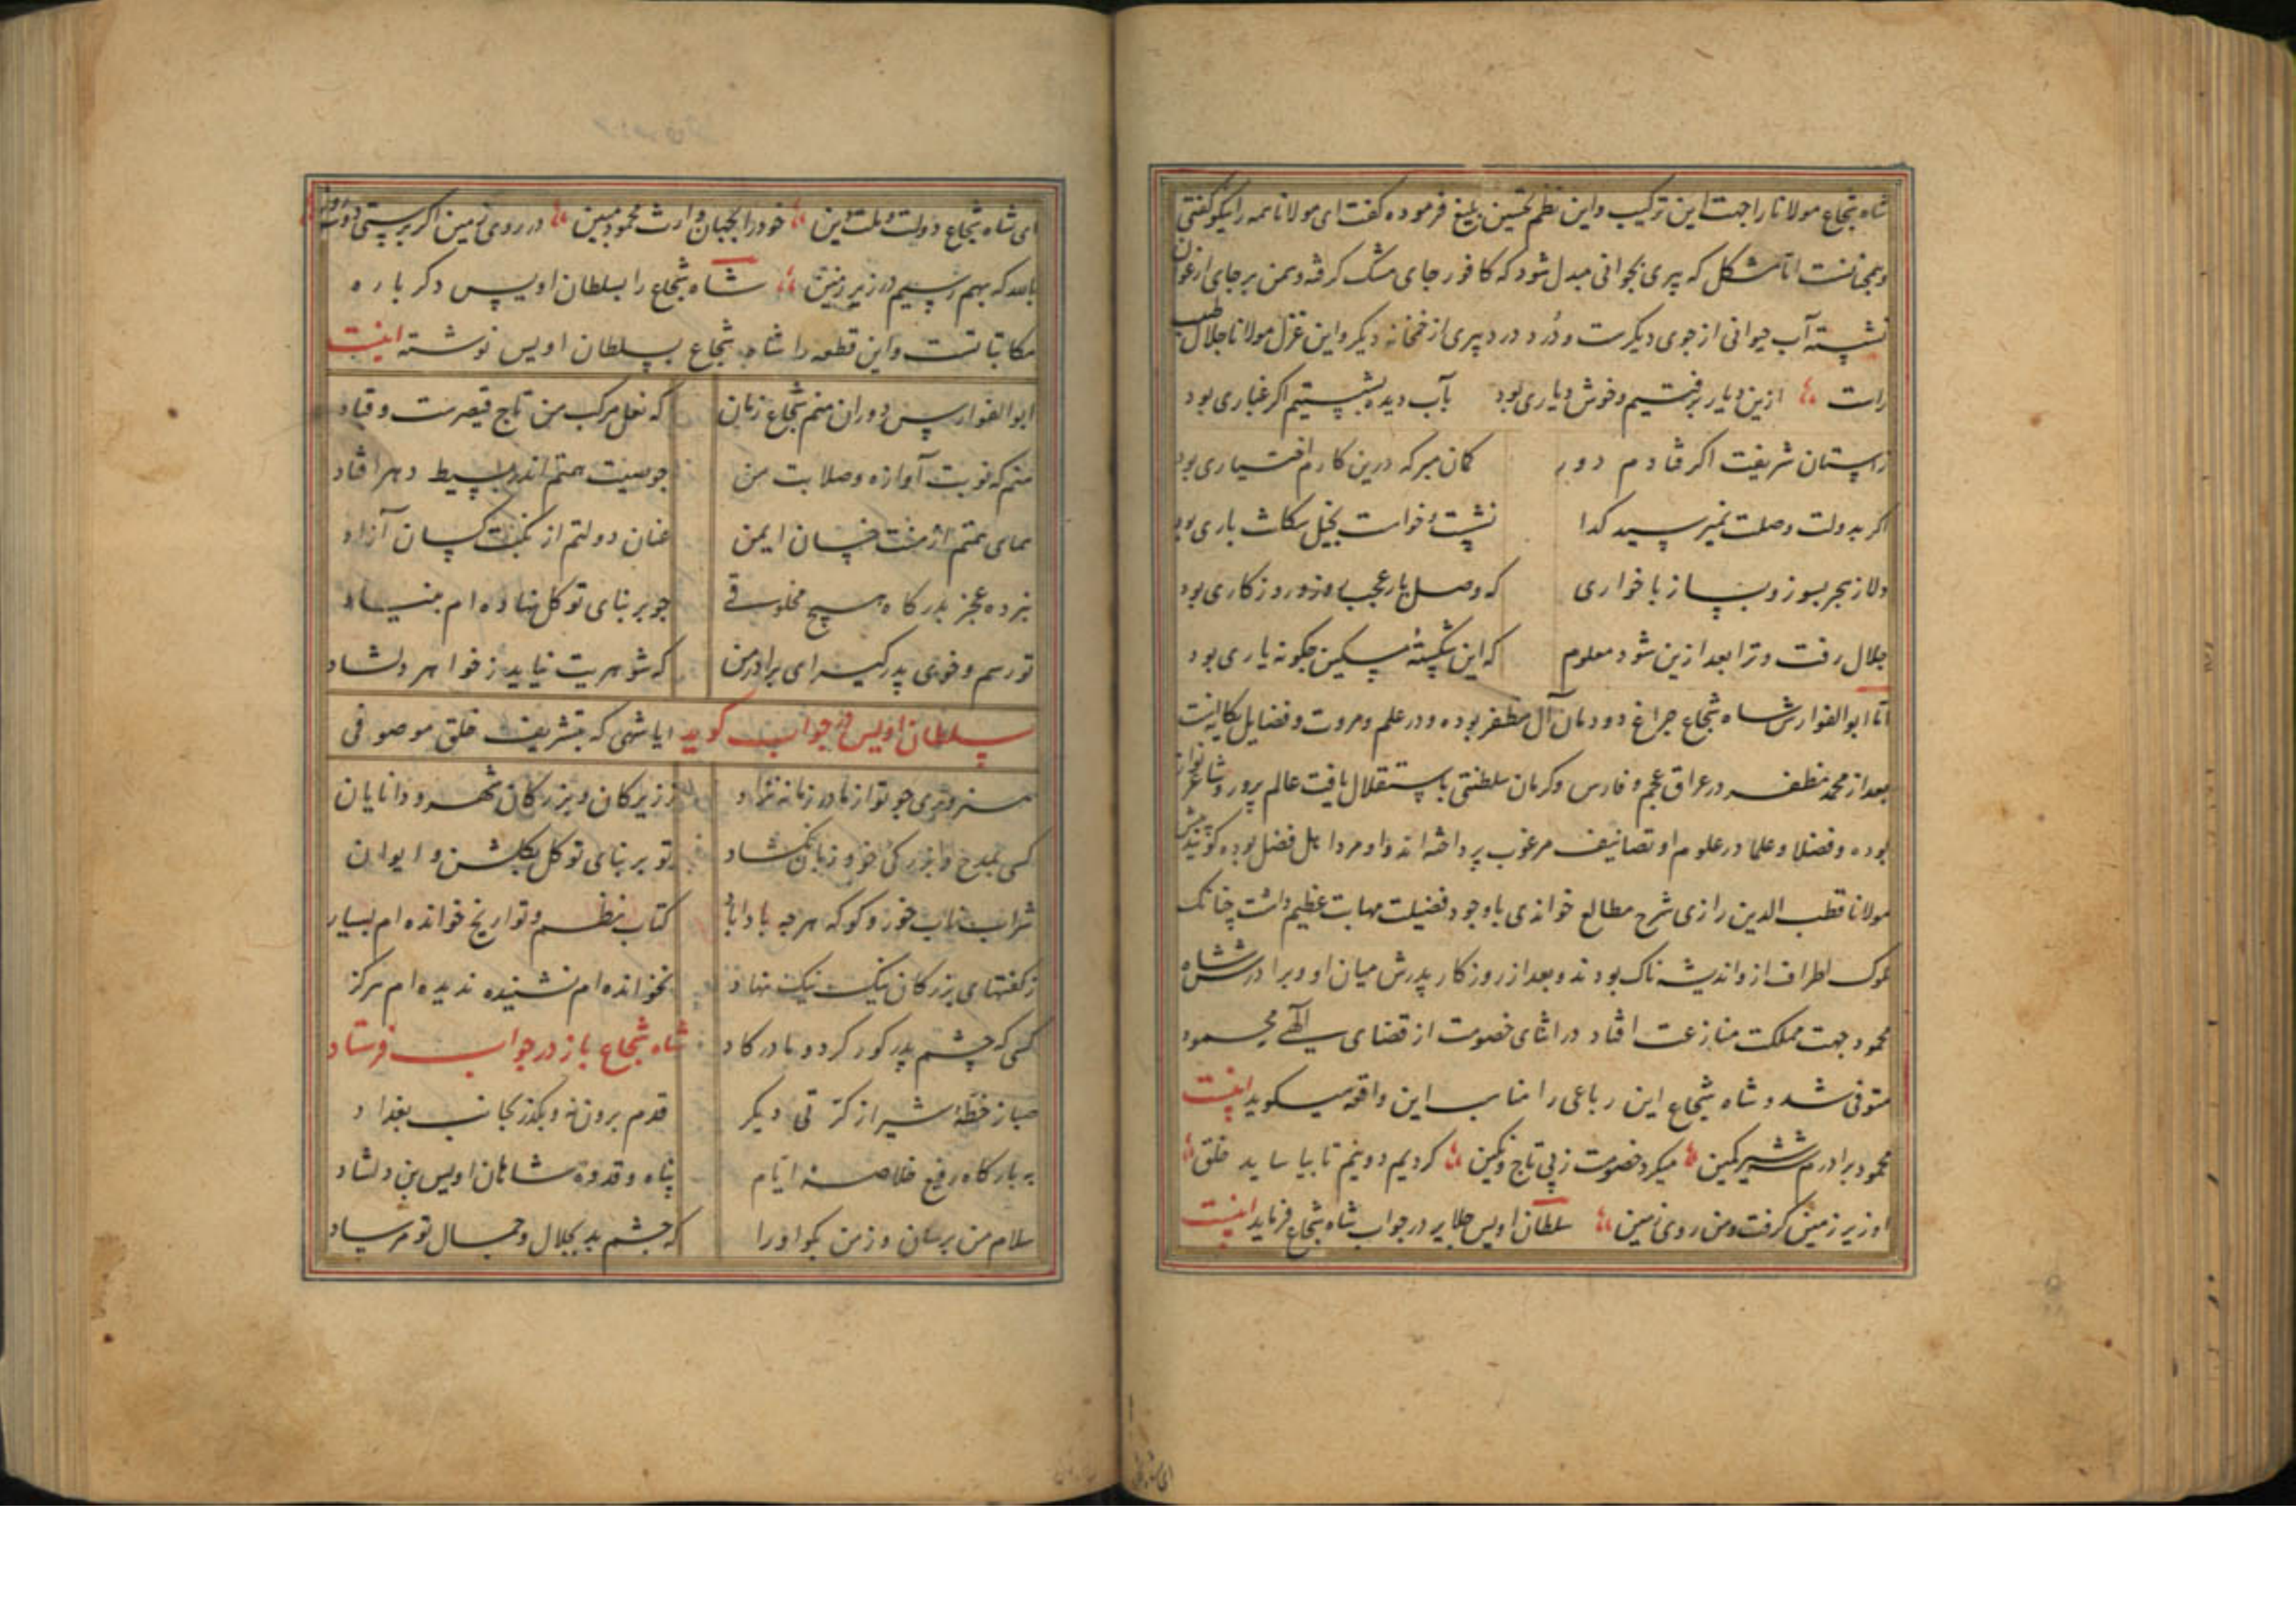 شاه شجاع مولانا را جهت این ترکیب و این نظم تحسین بلیغ فرموده گفت ای مولانا همه را نیکو گفتی
و همچنانست اما مشکل که پیری بجوانی مبدل شود که کافور جای مشک گرفته و سمن بر جای ارغوان
نشسته آب جوانی از جوی دیگرست و دُرد درد پیری از خمخانه دیگر و این غزل مولانا جلال طبیب
راست ازین دیار برفتیم و خوش دیاری بود بآب دیده بشستیم اگر غباری بود
ز آستان شریفت اگر فتادم دور گمان مبر که درین کارم اختیاری بود
اگر بدولت وصلت نمیرسید گدا نشست و خواست بخیل سگانت باری بود
دلا ز هجر بسوز و بساز با خواری که وصل یار عجب روز و روزگاری بود
جلال رفت و ترا بعد ازین شود معلوم که این شکستهٔ مسکین چگونه یاری بود
اما ابوالفوارس شاه شجاع چراغ دودمان آل مظفر بوده و در علم و مروت و فضایل یگانیست
بعد از محمد مظفر در عراق عجم و فارس و کرمان سلطنتی باستقلال یافت عالم پرور و شاعر نواز
بوده و فضلا و علما در علوم او تصانیف مرغوب پرداخته‌اند و او مرد اهل فضل بوده گویند پیش
مولانا قطب الدین رازی شرح مطالع خواندی باوجود فضیلت مهابت عظیم داشت چنانک
ملوک اطراف ازو اندیشه ناک بودند و بعد از روزگار پدرش میان او و برادرش شاه
محمود جهت مملکت منازعت افتاد در اثنای خصومت از قضای الهی محمود
متوفی شد و شاه شجاع این رباعی را مناسب این واقعه میگوید اینست
محمود برادرم شه شیر کمین میکرد خصومت ز پی تاج و نگین کردیم دو نیم تا بیاساید خلق
او زیر زمین گرفت و من روی زمین سلطان اویس جلایر در جواب شاه شجاع فرماید اینست
ای شاه شجاع دولت و ملت و دین خود را بجهان وارث محمود مبین در روی زمین اگر پرستی دو سه روز
بالله که بهم رسیم در زیر زمین شاه شجاع را بسلطان اویس دگر باره
مکاتباتست و این قطعه را شاه شجاع بسلطان اویس نوشته اینست
ابوالفوارس دوران منم شجاع زمان که نعل مرکب من تاج قیصرست و قباد
منم که نوبت آوازه و صلابت من چو صیت همتم اندر بسیط دهر افتاد
همای همتم از منت خسان ایمن عنان دولتم از نکبت کسان آزاد
نبرده عجز بدرگاه هیچ مخلوقی چو بر بنای توکل نهاده‌ام بنیاد
تو رسم و خوی پدر گیر ای برادر من که شوهریت نیاید ز خواهر دلشاد
سلطان اویس در جواب گوید ایا شهی که بتشریف خلق موصوفی
هنروری چو تو از مادر زمانه نزاد ز زیرکان و بزرگان شهر و دانایان
کسی بمدح و بزرگی خود زبان نگشاد تو بر بنای توکل بگلشن و ایوان
شراب ناب خور و گو که هرچه بادا باد کتاب نظم و تواریخ خوانده‌ام بسیار
ز گفتهای بزرگان نیک نیک نهاد نخوانده‌ام نشنیده ندیده‌ام هرگز
کسی که چشم پدر کور کرد و مادر گاد شاه شجاع باز در جواب فرستاد
صبا ز خطهٔ شیراز کرتی دیگر قدم برون نه و بگذر بجانب بغداد
به بارگاه رفیع خلاصهٔ ایام پناه و قدوهٔ شاهان اویس بن دلشاد
سلام من برسان و ز من بگو او را که چشم بد بجلال و جمال تو مرساد